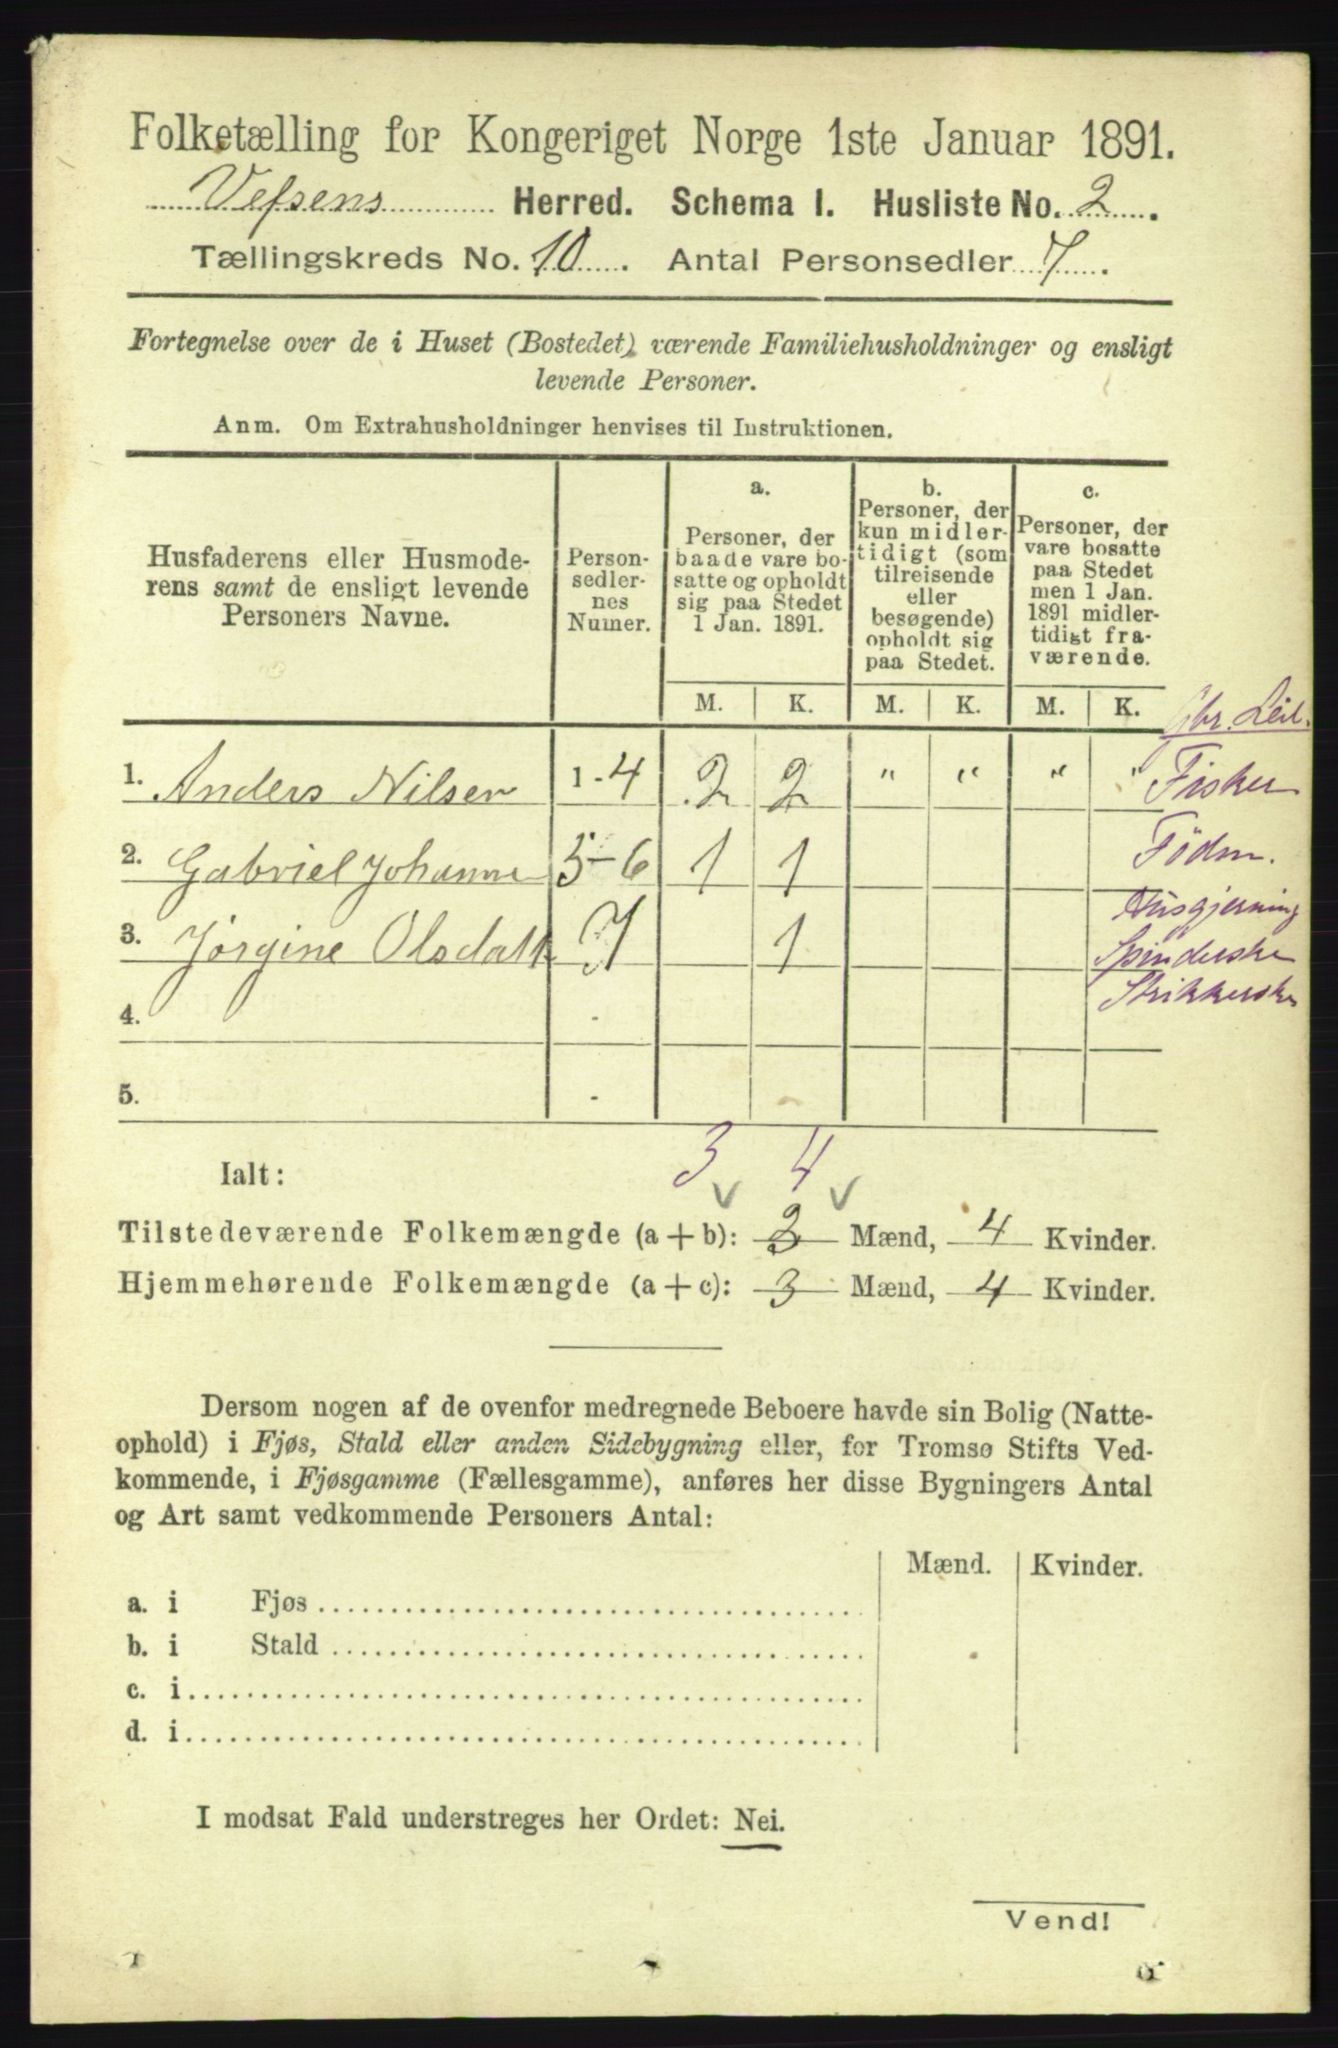 Folketælling for Kongeriget Norge 1ste Januar 1891.
Vefsens Herred. Schema I. Husliste No. 2.
Tællingskreds No. 10. Antal Personsedler 7.
Fortegnelse over de i Huset (Bostedet) værende Familiehusholdninger og ensligt
levende Personer.
Anm. Om Extrahusholdninger henvises til Instruktionen.
Husfaderens eller Husmode-
rens samt de ensligt levende
Personers Navne.
Person-
sedler-
nes
Numer.
a.
Personer, der
baade vare bo-
satte og opholdt
sig paa Stedet
1 Jan. 1891.
b.
Personer, der
kun midler-
tidigt (som
tilreisende
eller
besøgende)
opholdt sig
paa Stedet.
c.
Personer, der
vare bosatte
paa Stedet
men 1 Jan.
1891 midler-
tidigt fra-
værende.
M. K. M. K. M. K.
Gbr. Leil.
1. Anders Nilsen 1-4 2 2 " " " " Fisker
2. Gabriel Johanne 5-6 1 1 Födm.
Husgjerning
3. Jørgine Olsdatt 7 1 Spinderske
Strikkerske
4.
5.
3 4
Ialt:
Tilstedeværende Folkemængde (a+b): 3 Mænd, 4 Kvinder.
Hjemmehørende Folkemængde (a+c): 3 Mænd, 4 Kvinder.
Dersom nogen af de ovenfor medregnede Beboere havde sin Bolig (Natte-
ophold) i Fjøs, Stald eller anden Sidebygning eller, for Tromsø Stifts Ved-
kommende, i Fjøsgamme (Fællesgamme), anføres her disse Bygningers Antal
og Art samt vedkommende Personers Antal:
Mænd. Kvinder.
a. i Fjøs
b. i Stald
c. i
d. i
I modsat Fald understreges her Ordet: Nei.
Vend!